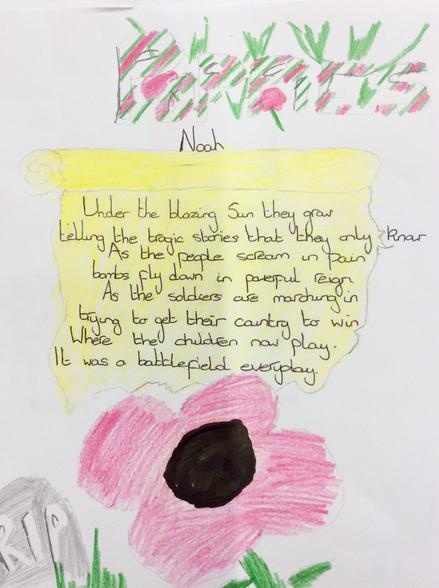 POPPIES
Noah
Under the blazing Sun they grow
telling the tragic stories that they only know
As the people scream in pain
bombs fly down in powerful reign
As the soldiers are marching in
trying to get their country to win
Where the children now play.
It was a battlefield everyday.
RIP